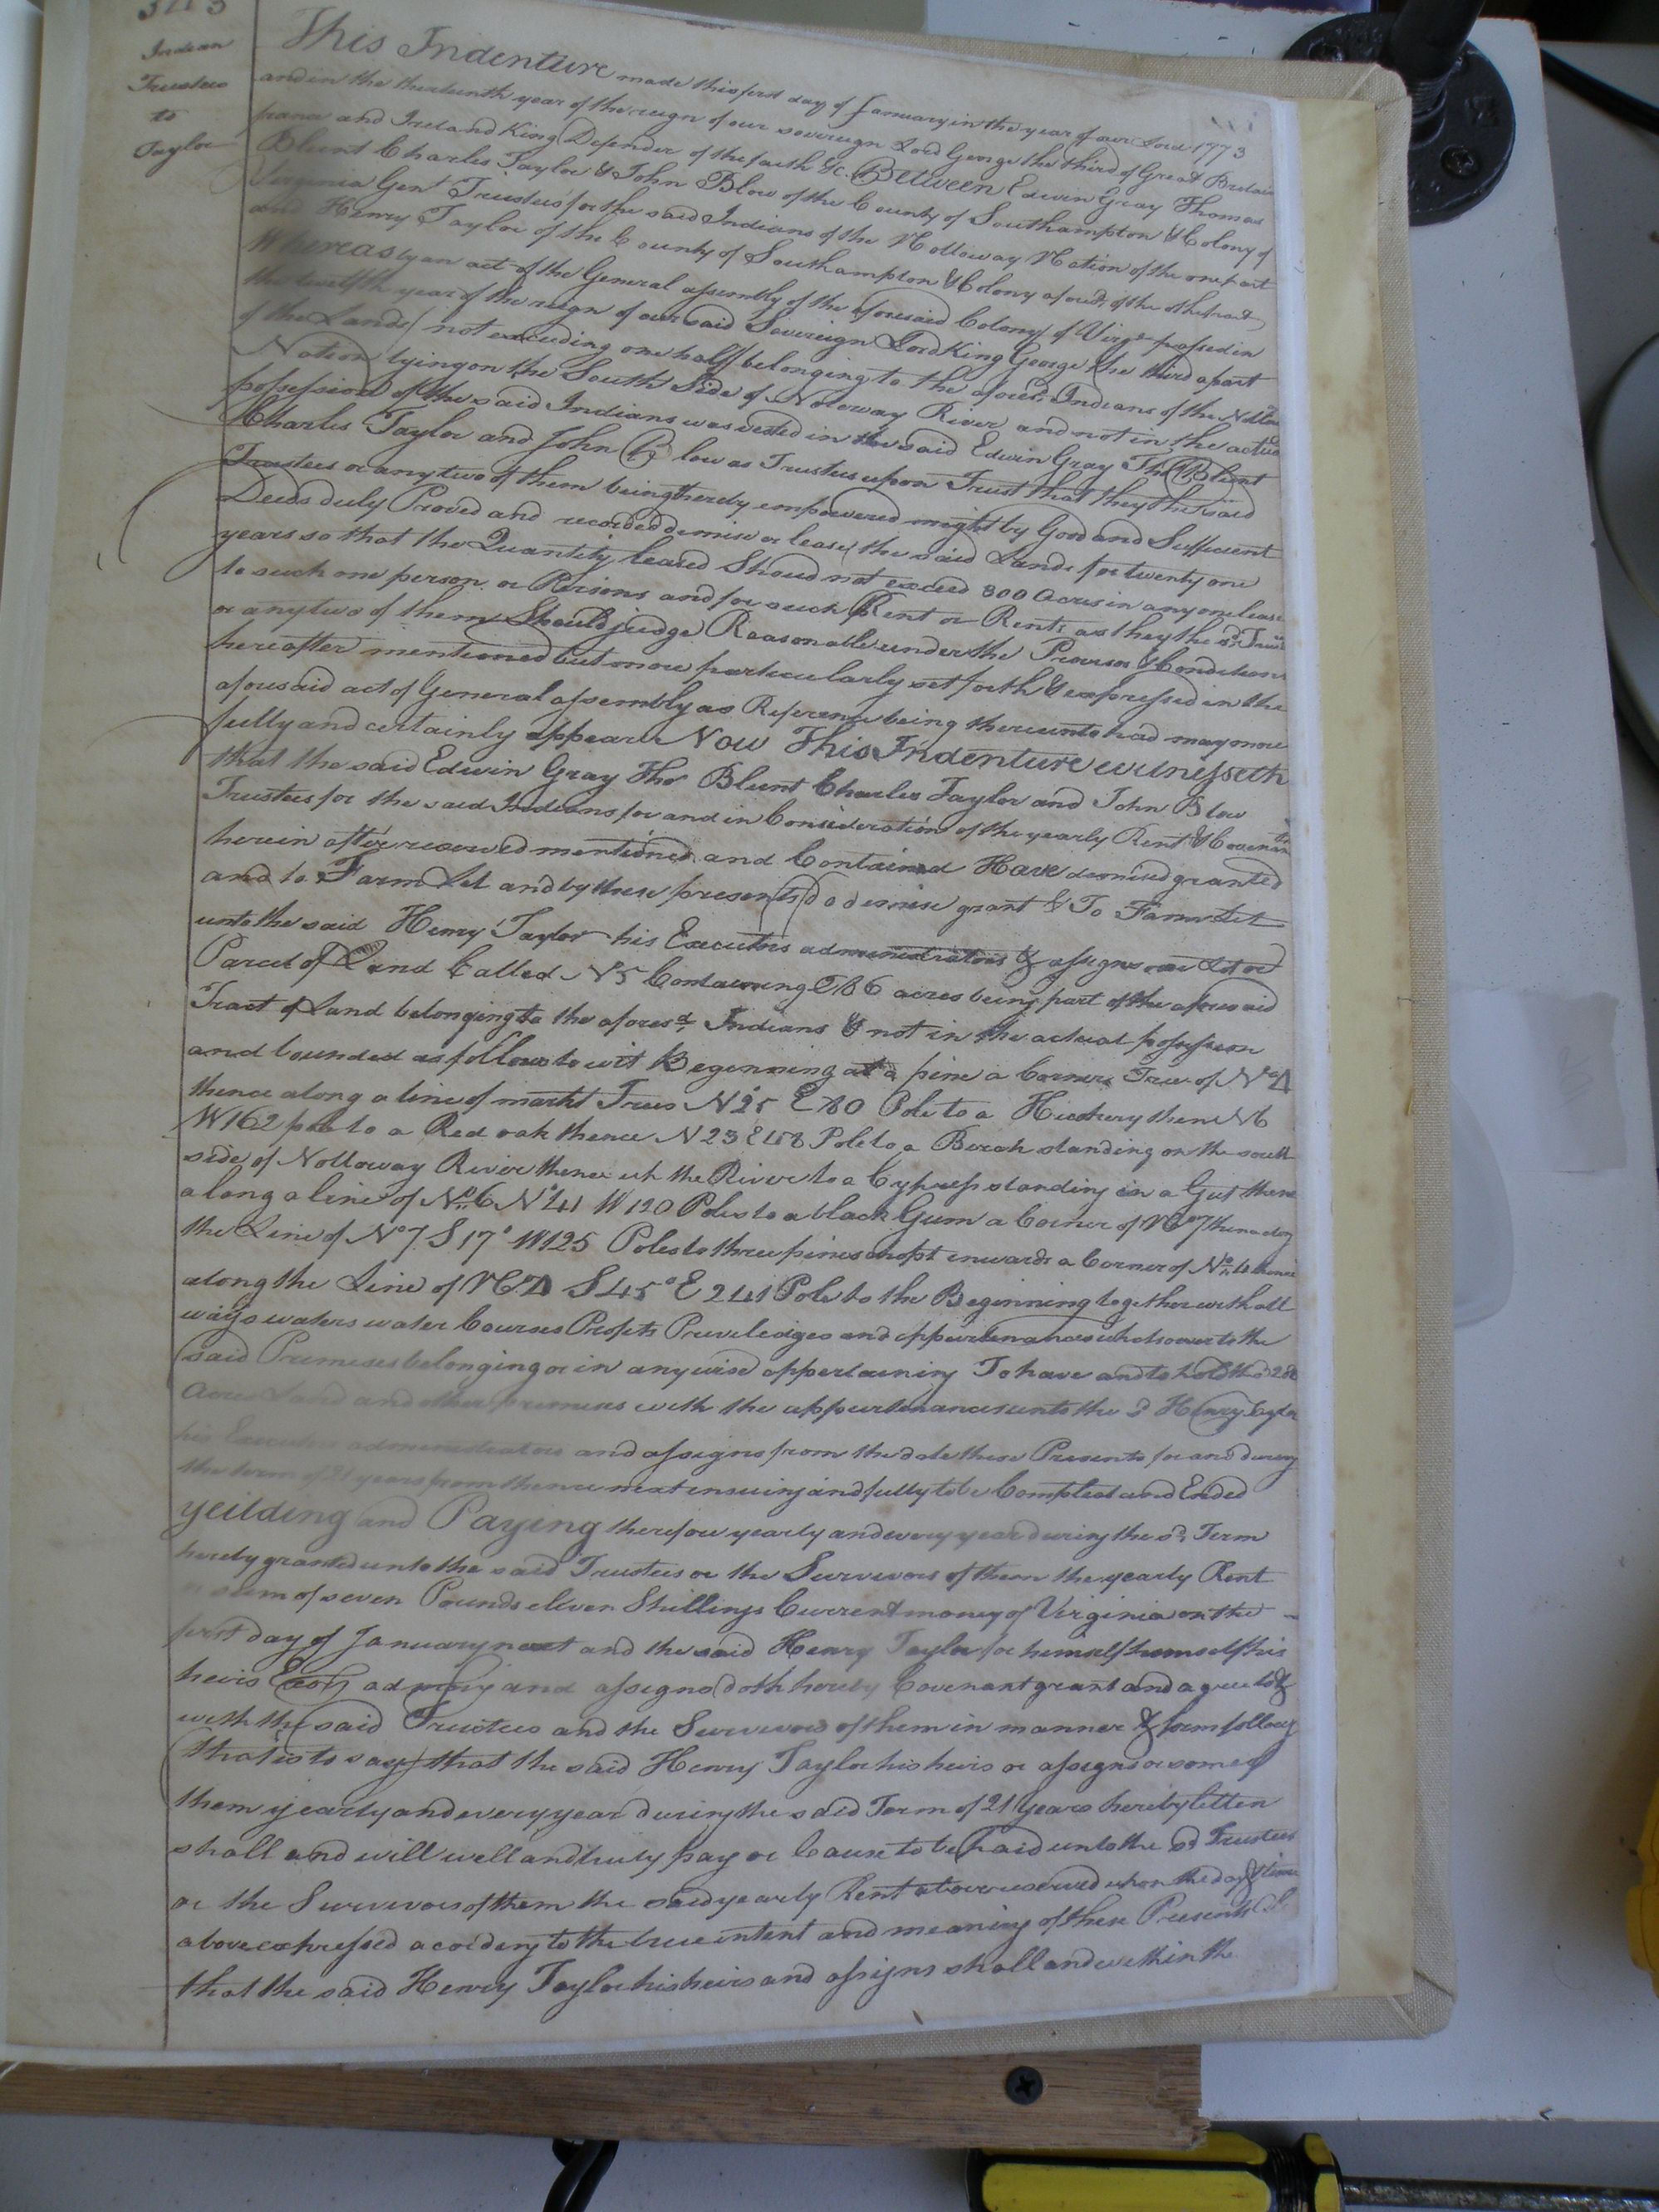 Indian
Trustees
to
Taylor
This Indenture made this first day of January in the year of our Lord 1773
and in the thirteenth year of the reign of our sovereign Lord George the third of Great Britain
france and Ireland King Defender of the faith &c. Between Edwin Gray Thomas
Blunt Charles Taylor & John Blow of the County of Southampton & Colony of
Virginia Gent Trustees for the said Indians of the Nottoway Nation of the one part
and Henry Taylor of the County of Southampton & Colony aforesd. of the other part
Whereas by an act of the General assembly of the aforesaid Colony of Virga passed in
the twelfth year of the reign of our said Sovereign Lord King George the third a part
of the Lands not exceeding one half belonging to the aforesd. Indians of the
Nation lying on the South Side of Notoway River and not in the actual
possession of the said Indians was vested in the said Edwin Gray Thos Blunt
Charles Taylor and John Blow as Trustees upon Trust that they the said
Trustees or any two of them being thereby empowered might by Good and Sufficient
Deeds duly Proved and recorded demise or lease the said Lands for twenty one
years so that the Quantity leased Shoud not exceed 300 Acres in any one lease
to such one person or Persons and for such Rent or Rents as they the sd. Trust
or any two of them Should judge Reasonable under the Provisos & Conditions
hereafter mentioned but more particularly set forth & expressed in the
aforesaid act of General assembly as Reference being thereunto had may more
fully and certainly appear Now This Indenture witnesseth
that the said Edwin Gray Thos Blunt Charles Taylor and John Blow
Trustees for the said Indians for and in Consideration of the yearly Rent & Covenants
herein after reserved mentioned and Contained Have demised granted
and to Farm Let and by these presents do demise grant & To Farm Let
unto the said Henry Taylor his Executors administrators & assigns Lot or
Parcel of Land Called No 5 Containing 286 acres being part of the aforesaid
Tract of Land belonging to the aforesd. Indians & not in the actual possession
and bounded as follows to wit Beginning at a pine a Corner Tree of No 4
thence along a line of markt Trees N 25 E 80 Pole to a Hickory thence N 6
W 162 pole to a Red oak thence N 23 E 48 Pole to a Beach standing on the south
side of Nottoway River thence up the River to a Cypress standing in a Gut thence
along a line of No. 6 N° 41 W 120 Poles to a black Gum a Corner of No 7 thence along
the Line of No 7 S 17° W 125 Poles to three pines chopt inwards a Corner of No. 4 thence
along the Line of No 4 S 45° E 241 Pole to the Beginning together with all
ways waters water Courses Profits Previledges and appurtenances whatsoever to the
said Premises belonging or in any wise appertaining To have and to hold the sd 286
Acres Land and other premises with the appurtenances unto the sd Henry Taylor
his Executors administrators and assigns from the date these Presents for and during
the term of 21 years from thence next ensuing and fully to be Compleat and Ended
Yeilding and Paying therefore yearly and every year during the sd. Term
hereby granted unto the said Trustees or the Survivors of them the yearly Rent
or sum of seven Pounds eleven Shillings Current money of Virginia on the
first day of January next and the said Henry Taylor for himself his
heirs Exors and assigns doth hereby Covenant grant and agree to &
with the said Trustees and the Survivors of them in manner & form follow
that is to say that the said Henry Taylor his heirs or assigns or some of
them yearly and every year during the said Term of 21 years hereby letten
shall and will well and truly pay or Cause to be paid unto the sd Trustees
or the Survivors of them the said yearly Rent above reserved upon the day & time
above expressed according to the true intent and meaning of these Presents &
that the said Henry Taylor his heirs and assigns shall and within the